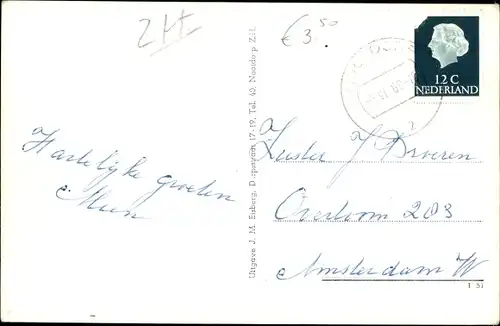 2 H
€ 3.50
12 C
NEDERLAND
Hartelijke groeten
Mien
Uitgave J. M. Esberg, Dorpsstraat 17-19, Tel. 40, Nootdorp Z.H.
Zuster J Broeren
Overtoom 283
Amsterdam W
T 51